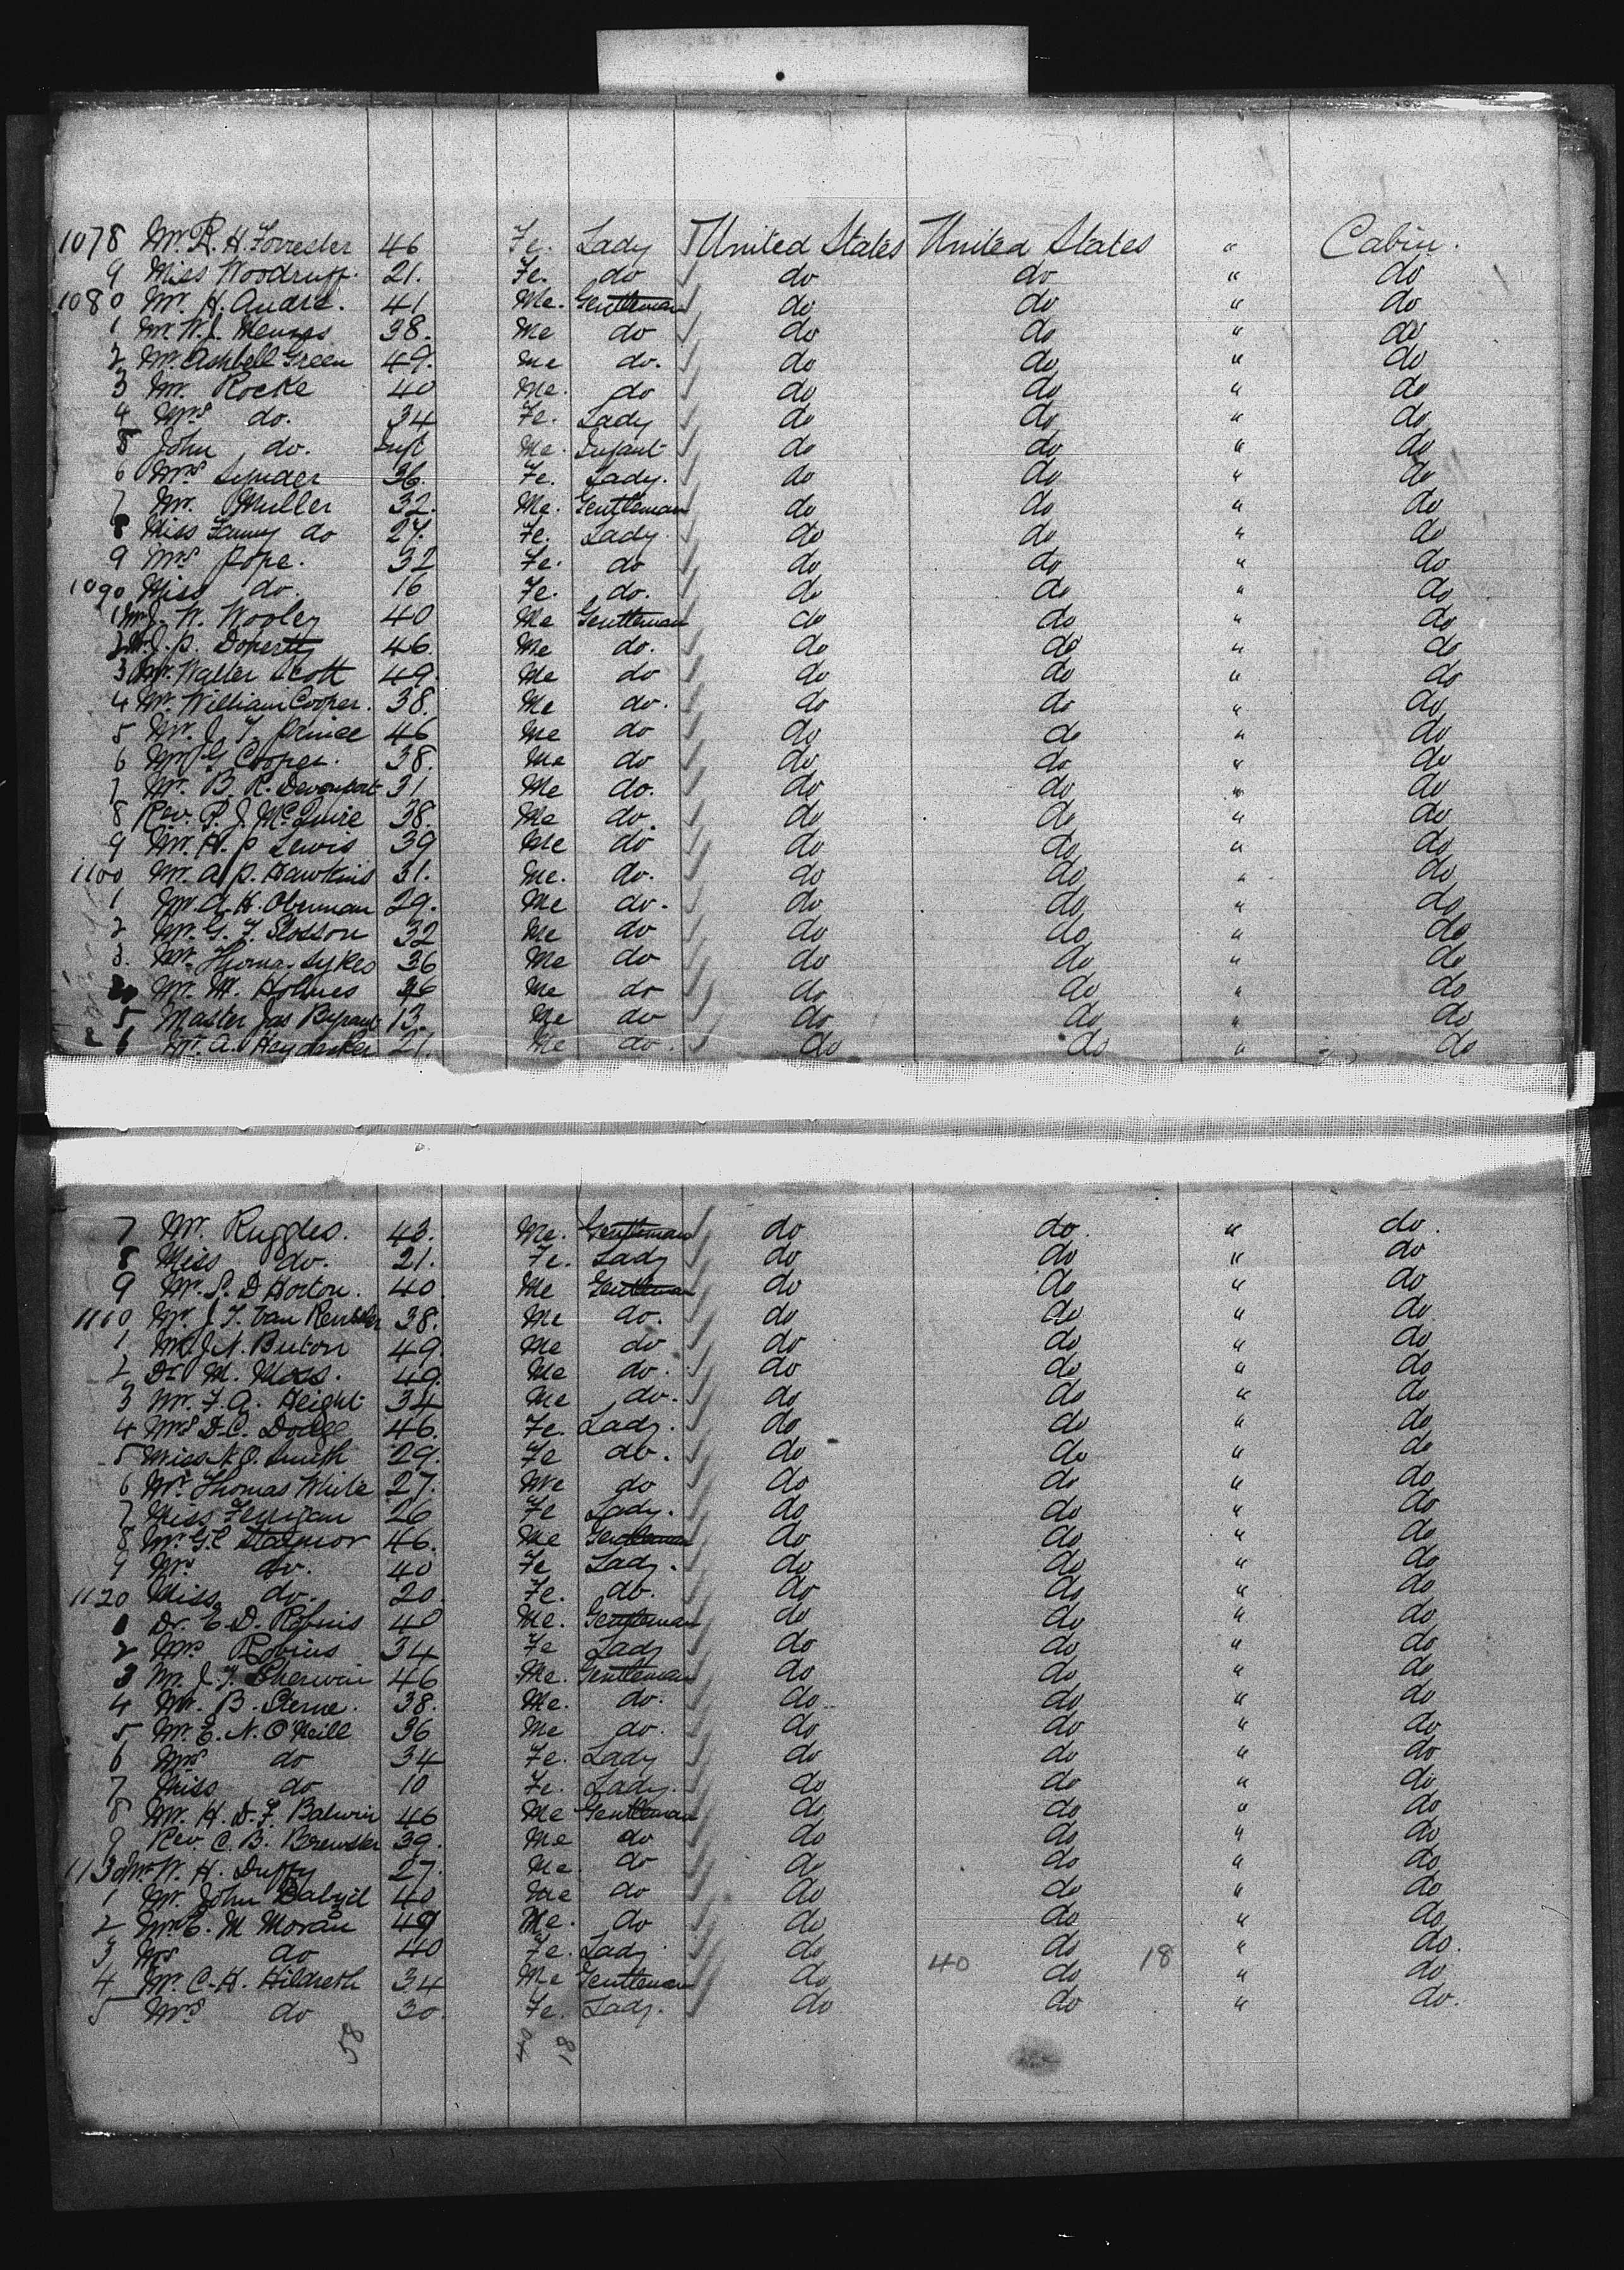 1078 Mr. R. H. Forrester 46 Fe. Lady United States United States " Cabin.
9 Miss Woodruff. 21. Fe. do do do " do
1080 Mr. H. Andre. 41 Me. Gentleman do do " do
1 Mr. W. J. 38. Me do do do " do
2 Mr. Ashbell Green 49. Me do. do do " do
3 Mr. Rocke 40 Me. do do do " do
4 Mrs do. 34 Fe. Lady do do " do
5 John do. Inft Me. Infant do do " do
6 Mrs Snyder 36. Fe. Lady. do do " do
7 Mr. Muller 32. Me. Gentleman do do " do
8 Miss Fanny do 27. Fe. Lady. do do " do
9 Mrs Pope. 32 Fe. do do do " do
1090 Miss do. 16 Fe. do. do do " do
1 Mr J. W. Wooley 40 Me Gentleman do do " do
2 Mr. J. P. Doherty 46. Me do. do do " do
3 Mr. Walter Scott 49. Me do do do " do
4 Mr. William Cooper. 38. Me do. do do " do
5 Mr. J. T. Prince 46 Me do do do " do
6 Mr. G. Cooper. 38. Me do do do " do
7 Mr. B. R. Devonport 31 Me do. do do " do
8 Rev. P. J. McGuire 38. Me do. do do " do
9 Mr. H. P. Lewis 39 Me do do do " do
1100 Mr. A. P. Hawkins 31. Me. do. do do " do
1 Mr. A. H. Oberman 29. Me do. do do " do
2 Mr. G. F. Slosson 32 Me do do do " do
3. Mr. Thomas Sykes 36 Me do do do " do
4 Mr. M. Holmes 36 Me do do do " do
5 Master Jas Bryant 13. Me do do do " do
6 Mr. A. Heydecker 21. Me do. do do " do
7 Mr. Ruggles. 43. Me. Gentleman do do. " do.
8 Miss do. 21. Fe. Lady do do " do
9 Mr. S. D Horton. 40. Me Gentleman do do " do
1110 Mr. J. T. Van 38. Me do. do do " do
1 Mr. J. N. Buton 49. Me do do do " do
2 Dr. M. Moss. 49. Me do. do do " do
3 Mr. F. A. Height 34 Me do. do do " do
4 Mrs D. C. Dodge 46. Fe. Lady. do do " do
5 Miss N. O. Smith 29. Fe do. do do " do
6 Mr. Thomas White 27. Me do do do " do
7 Miss 26 Fe Lady. do do " do
8 Mr. G. C Staynor 46. Me Gentleman do do " do
9 Mrs do. 40 Fe Lady. do do " do
1120 Miss do. 20. Fe. do. do do " do
1 Dr. E. D. Robins 40 Me. Gentleman do do " do
2 Mrs Robins 34 Fe Lady do do " do
3 Mr. J. T. Sherwin 46 Me. Gentleman do do " do
4 Mr. B. Sterne. 38. Me. do. do do " do
5 Mr. E. N. O'Neill 36 Me do. do do " do
6 Mrs do 34 Fe. Lady do do " do
7 Miss do 10 Fe. Lady. do do " do
8 Mr. H. D. F. Balwin 46 Me Gentleman do do " do
9 Rev. C. B. Brewster 39. Me do do do " do
1130 Mr. W. H. Duffy 27. Me. do do do " do
1 Mr. John Dalyell 40 Me do do do " do
2 Mr. E. M Moran 49 Me. do do do " do
3 Mrs do 40 Fe. Lady do do " do.
4 Mr. C. H. Hildreth 34 Me Gentleman do 40 do 18 " do
5 Mrs do 30. Fe. Lady. do do " do.
58 40 18